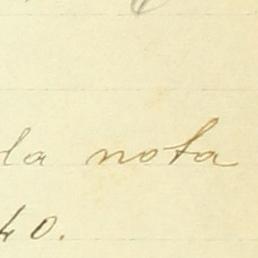 la nota
40.